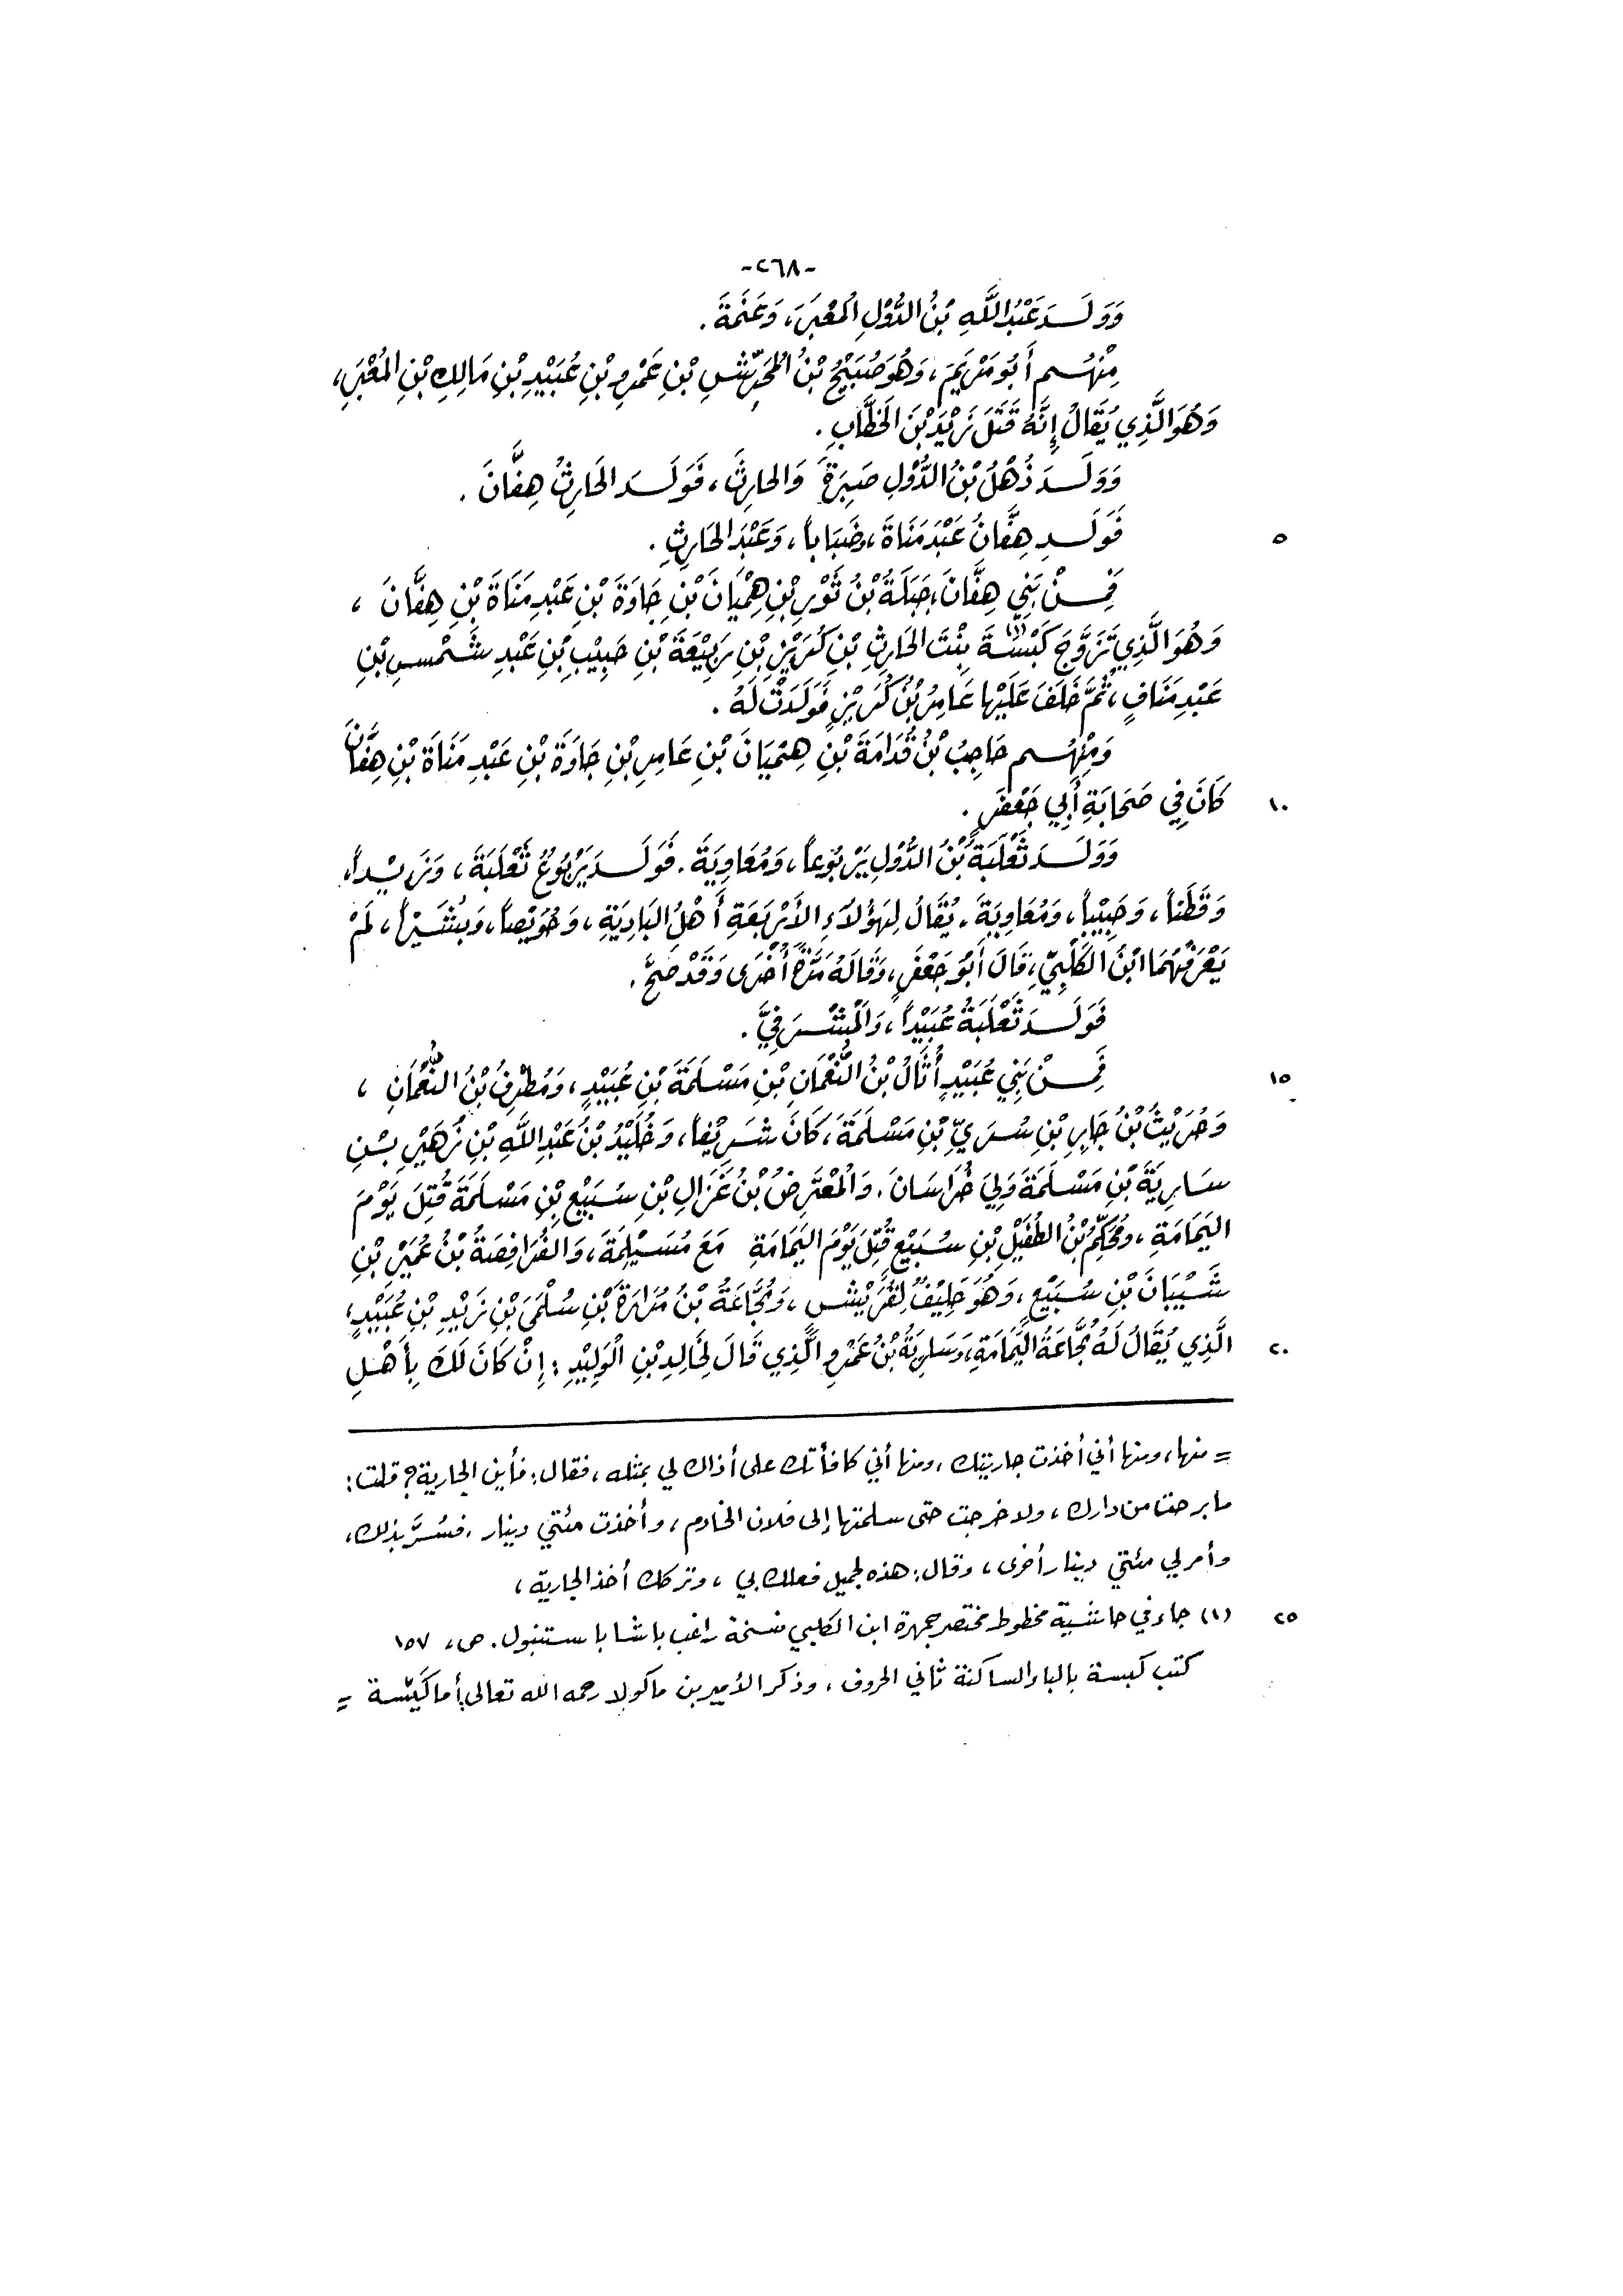 -٢٦٨-
وَوَلَدَ عَبْدُ اللَّهِ بْنُ الدُّوْلِ الْمُعْبَرَ، وَعَنَمَةَ.
مِنْهُم أَبُو مَرْيَمَ، وَهُوَ صُبَيْحُ بْنُ الْمُحَرِّشِ بْنِ عَمْرِو بْنِ عُبَيْدِ بْنِ مَالِكِ بْنِ الْمُعْبَرِ،
وَهُوَ الَّذِي يُقَالُ إِنَّهُ قَتَلَ زَيْدَ بْنَ الخَطَّابِ.
وَوَلَدَ ذُهْلُ بْنُ الدُّوْلِ صَبِرَةَ وَالحارِثَ، فَوَلَدَ الحَارِثُ هِفَّانَ.
فَوَلَدَ هِفَّانُ عَبْدَ مَنَاةَ، وَضَبَاباً، وَعَبْدَ الحَارِثِ.
٥
فَمِنْ بَنِي هِفَّانَ، جَبَلَةُ بْنُ ثَوْرِ بْنِ هِمْيَانَ بْنِ جَاوَةَ بْنِ عَبْدِ مَنَاةَ بْنِ هِفَّانَ،
وَهُوَ الَّذِي تَزَوَّجَ كَبْسَةَ (١) بِنْتَ الحَارِثِ بْنِ كُرَيْزِ بْنِ رَبِيْعَةَ بْنِ حَبِيْبِ بْنِ عَبْدِ شَمْسِ بْنِ
عَبْدِ مَنَافٍ، ثُمَّ خَلَفَ عَلَيْها عَامِرُ بْنُ كُرَيْزٍ فَوَلَدَتْ لَهُ.
وَمِنْهُم حَاجِبُ بْنُ قُدَامَةَ بْنِ هِمْيَانَ بْنِ عَامِرِ بْنِ جَاوَةَ بْنِ عَبْدِ مَنَاةَ بْنِ هِفَّانَ
كَانَ فِي صَحَابَةِ أَبِي جَعْفَرٍ.
١٠
وَوَلَدَ ثَعْلَبَةُ بْنُ الدُّوْلِ يَرْبُوعاً، وَمُعَاوِيَةَ. فَوَلَدَ يَرْبُوعُ ثَعْلَبَةَ، وَزَيْداً،
وَقَطَناً، وَحَبِيْباً، وَمُعَاوِيَةَ، يُقَالُ لِهَؤُلَاءِ الأَرْبَعَةِ أَهْلُ البَادِيَةِ، وَحُوَيْصاً، وَبُشَيْراً، لَمْ
يَعْرِفْهُمَا ابْنُ الكَلْبِيِّ، قَالَ أَبُو جَعْفَرٍ، وَقَالَهُ مَرَّةً أُخْرَى وَقَدْ صَحَّ.
فَوَلَدَ ثَعْلَبَةُ عُبَيْداً، وَالْمَشْرَفِيَّ.
فَمِنْ بَنِي عُبَيْدٍ أُثَالُ بْنُ النُّعْمَانِ بْنِ مَسْلَمَةَ بْنِ عُبَيْدٍ، وَمُطْرِفُ بْنُ النُّعْمَانِ،
١٥
وَحُرَيْثُ بْنُ جَابِرِ بْنِ سُرَيِّ بْنِ مَسْلَمَةَ، كَانَ شَرِيْفاً، وَخُلَيْدُ بْنُ عَبْدِ اللَّهِ بْنِ زُهَيْرِ بْنِ
سَارِيَةَ بْنِ مَسْلَمَةَ وَلِيَ خُرَاسَانَ. وَالْمُعْتَرِضُ بْنُ غَزَالِ بْنِ سُبَيْعِ بْنِ مَسْلَمَةَ قُتِلَ يَوْمَ
اليَمَامَةِ، وَمُحَكِّمُ بْنُ الطُّفَيْلِ بْنِ سُبَيْعٍ قُتِلَ يَوْمَ اليَمَامَةِ مَعَ مُسَيْلِمَةَ، وَالفُرَافِصَةُ بْنُ عُمَيْرِ بْنِ
شَيْبَانَ بْنِ سُبَيْعٍ، وَهُوَ حَلِيْفٌ لِقُرَيْشٍ، وَمُجَّاعَةُ بْنُ مُرَارَةَ بْنِ سُلْمَى بْنِ زَيْدِ بْنِ عُبَيْدٍ،
الَّذِي يُقَالُ لَهُ مُجَّاعَةُ اليَمَامَةِ، وَسَارِيَةُ بْنُ عَمْرٍو الَّذِي قَالَ لِخَالِدِ بْنِ الْوَلِيْدِ: إِنْ كَانَ لَكَ بِأَهْلِ
٢٠
= منها، ومنها أني أخذت جاريتك، ومنها أني كافأتك على أذاك لي بمثله، فقال: فأين الجارية؟ قلت:
ما برحت من دارك، ولا خرجت حتى سلمتها إلى فلان الخادم، وأخذت مئتي دينار، فسُرَّ بذلك،
وأمر لي مئتي دينار أخرى، وقال: هذه لجميل فعلك بي، وتركك أخذ الجارية،
(١) جاء في حاشية مخطوط مختصر جمهرة ابن الكلبي نسخة راغب باشا باستنبول. ص، ١٥٧
٢٥
كتب كبسة بالباء الساكنة ثاني الحروف، وذكر الأمير بن ماكولا رحمه الله تعالى: أما كَيِّسة =